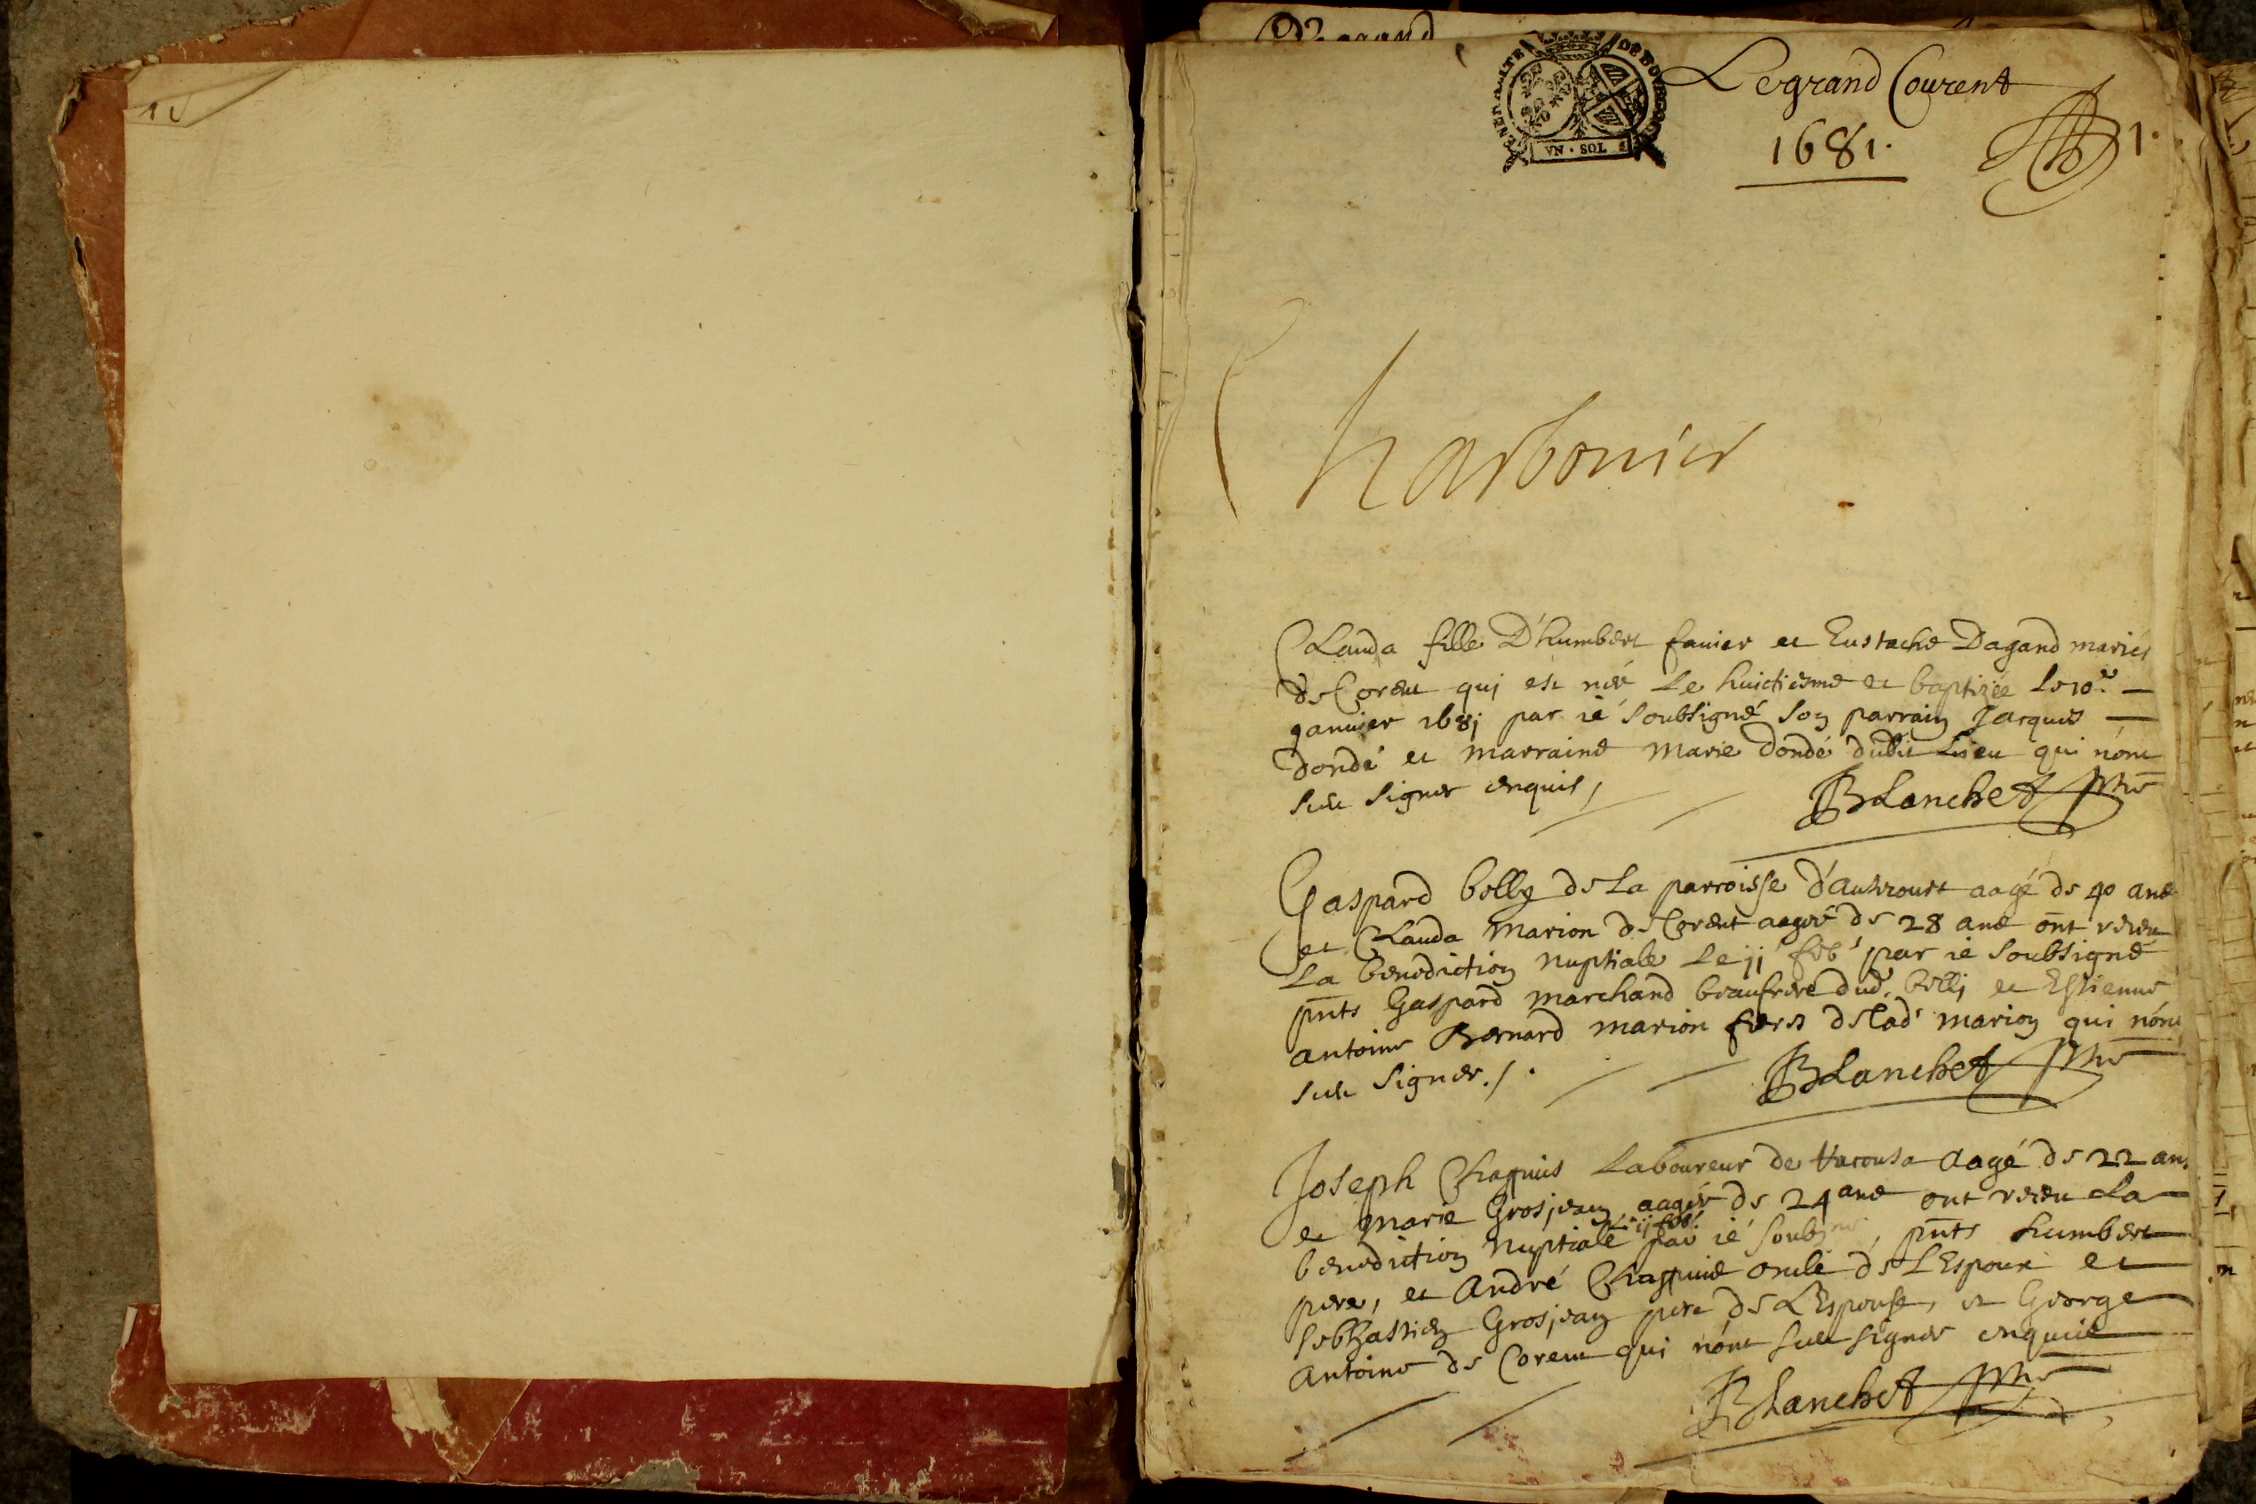 GENERALITE DE BOURGOGNE
VN · SOL
Legrand Courent
1681.
1.
Charbonier
Clauda fille D'humbert favier et Eustache Dagand mariés
de Corent qui est née Le huictiesme et baptizée le 10e
janvier 1681 par ie soubsigné son parrain Jacques
dondé et marraine marie dondé dudit Lieu qui n'ont
sceu signer enquis,
BLanchet
Gaspard billy de La parroisse d' aagé de 40 ans
et Clauda Marion de Corent aagée de 28 ans ont receu
La benediction nuptiale Le jj feb par ie soubsigné
pnts Gaspard marchand beaufrere dud. billj et Estienne
antoine Bernard marion freres de lad marion qui n'ont
sceu signer./.
BLanchet
Joseph Chappuis Laboureur de aagé de 22 ans
et Marie Grosjean aagée de 24 ans ont receu La
benediction Nuptiale par ie pnts humbert
pere, et André Chappuis oncle de L'Espoux et
Grosjean pere de L'Espouse, et George
antoine de Corent qui n'ont sceu signer enquis
BLanchet